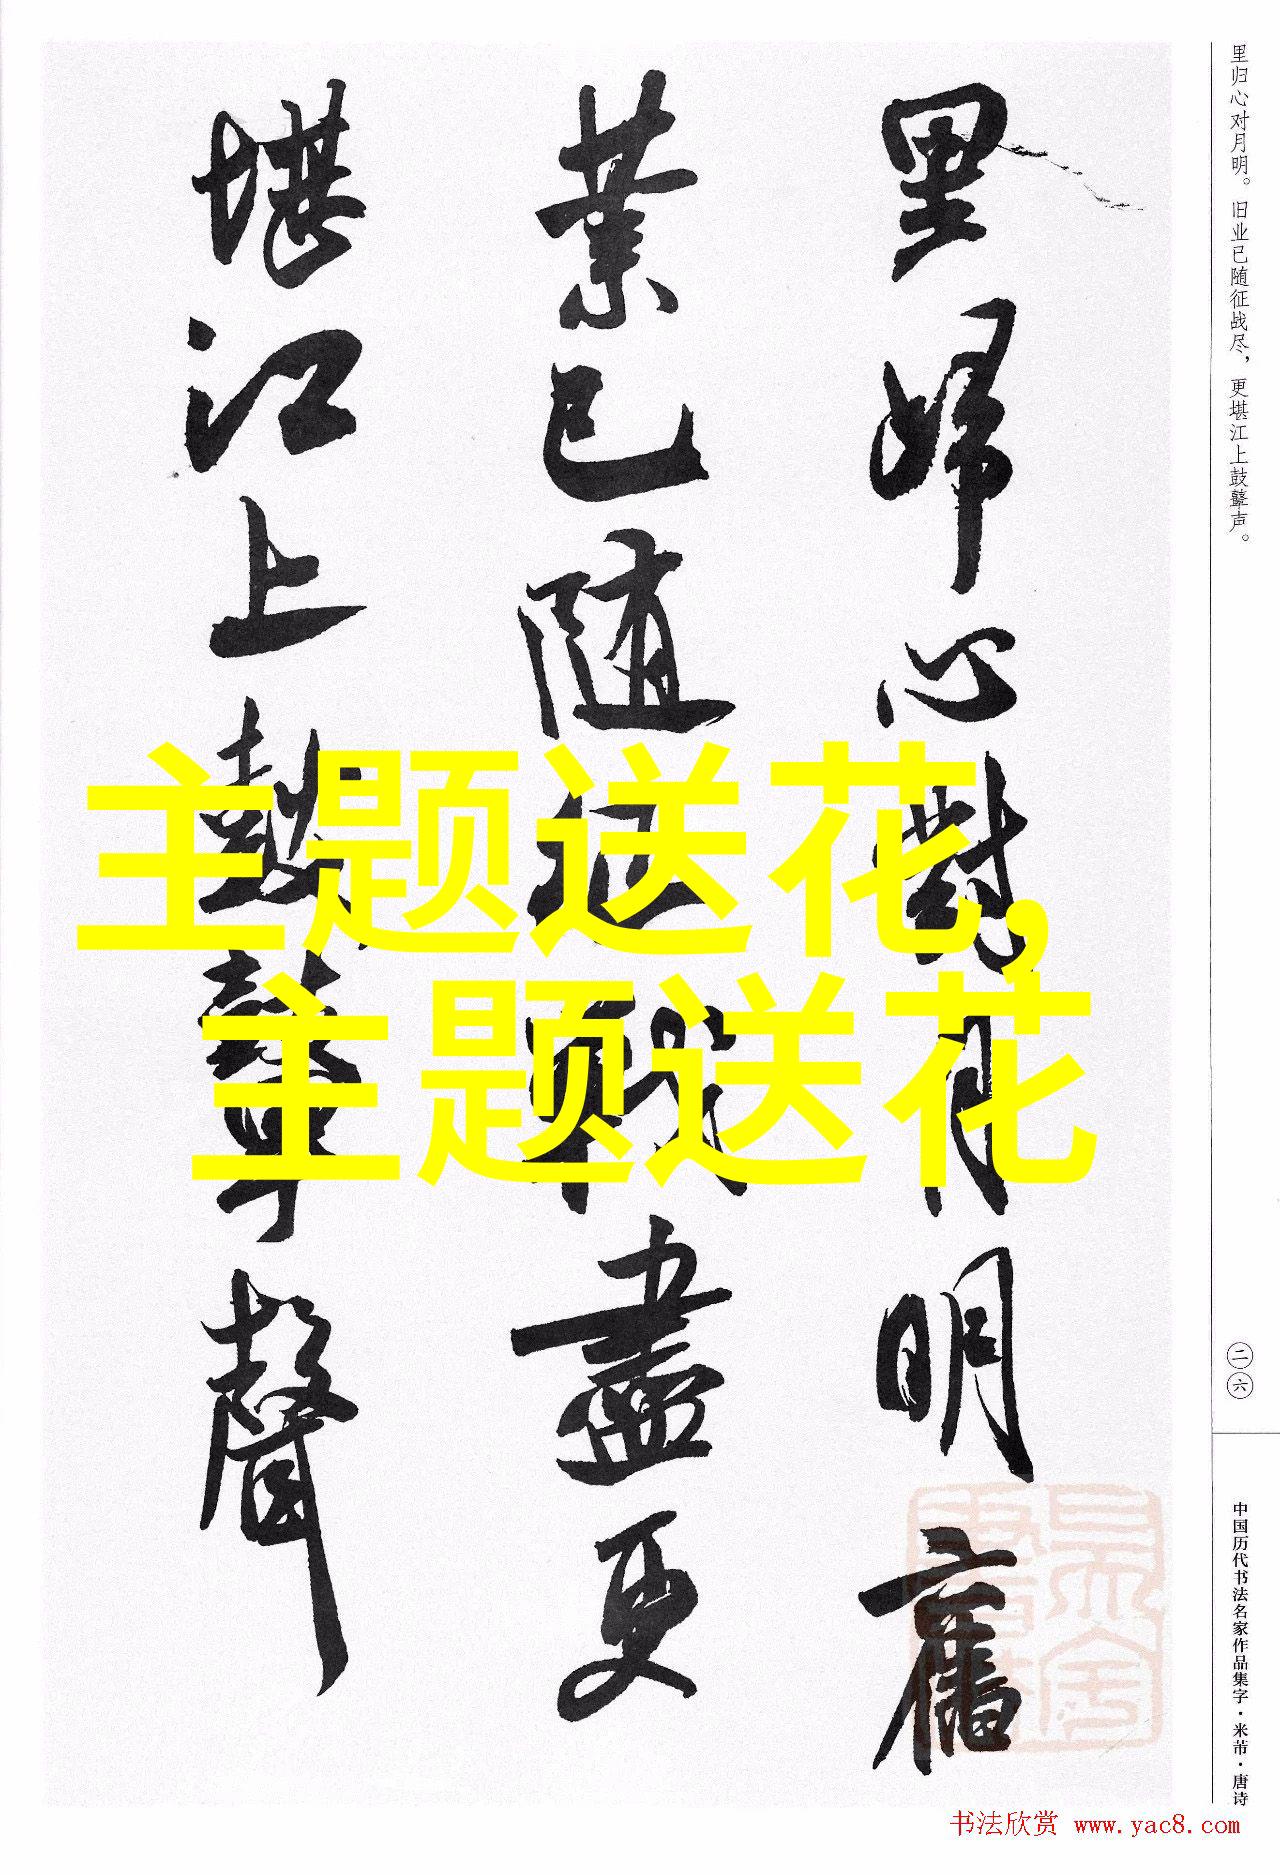 里歸心對月明舊
業已随征戰盡更
堪江上鼓鼙聲
主题送花,
主题送花
里归心对月明。旧业已随征战尽，更堪江上鼓鼙声。
二六
中国历代书法名家作品集字·米芾·唐诗
书法欣赏 www.yac8.com